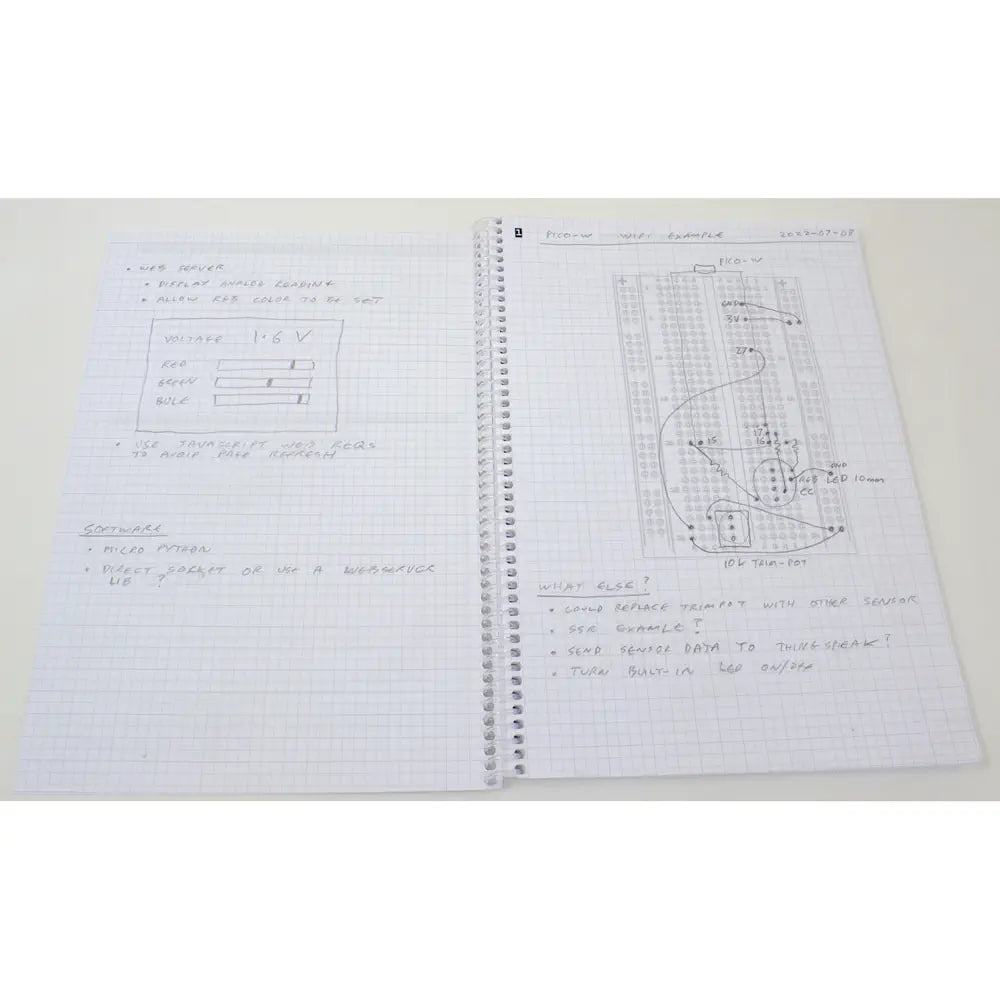 • WEB SERVER
• DISPLAY ANALOG READING
• ALLOW RGB COLOR TO BE SET
VOLTAGE 1.6 V
RED
GREEN
BULE
• USE JAVASCRIPT WEB REQS
TO AVOID PAGE REFRESH
SOFTWARE
• MICRO PYTHON
• DIRECT SOCKET OR USE A WEBSERVER
LIB ?
1 PICO-W WIFI EXAMPLE 2022-07-08
PICO-W
GND
3V
27
17
15 16
GND
RGB LED 10mm
CC
10K TRIM-POT
WHAT ELSE?
• COULD REPLACE TRIMPOT WITH OTHER SENSOR
• SSR EXAMLE?
• SEND SENSOR DATA TO THINGSPEAK?
• TURN BUILT-IN LED ON/OFF